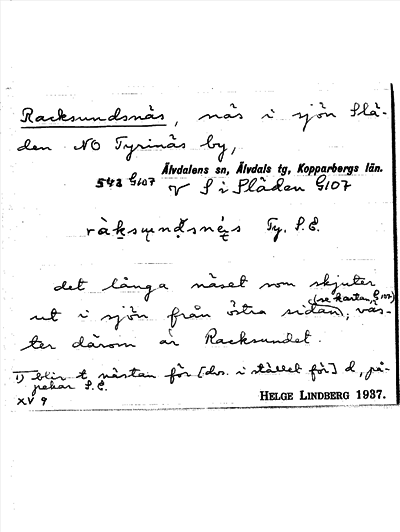 Racksundsnäs, näs i sjön Slä-
den NO Tyrinäs by,
Älvdalens sn, Älvdals tg, Kopparbergs län.
543 G107 V S i Släden G107
Ty. S.E.
det långa näset som skjuter
(se kartan G107)
ut i sjön från östra sidan; väs-
ter därom är Racksundet.
1) blir t nästan för [dvs. i stället för] d, på-
pekar S.E.
XV 9
HELGE LINDBERG 1937.